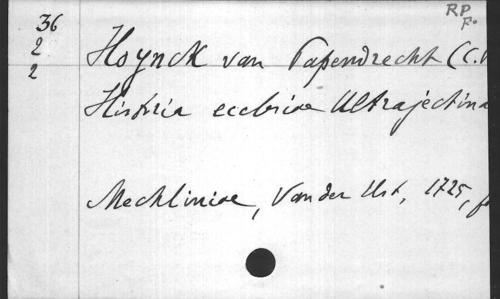 RP
F°
36
2
2
Hoynck van Papendrecht (C.
Historia ecclesiae Ultrajectina
Mechliniae, Van der Elst, 1725, f